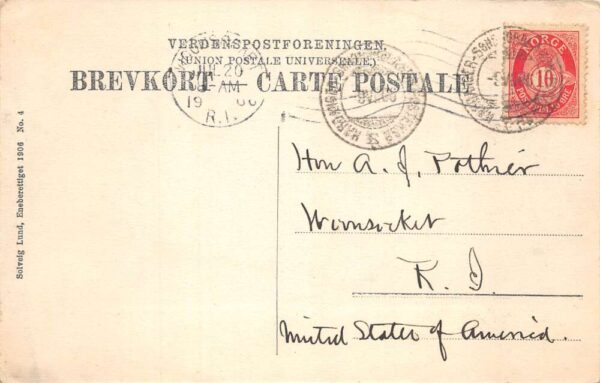 VERDENSPOSTFORENINGEN.
(UNION POSTALE UNIVERSELLE.)
BREVKORT — CARTE POSTALE
20
AM
19
R.I.
NORGE
10
POST
ØRE
Hon A. J. Pothier
Woonsocket
R. I.
United States of America.
Solveig Lund, Eneberettiget 1906 No. 4